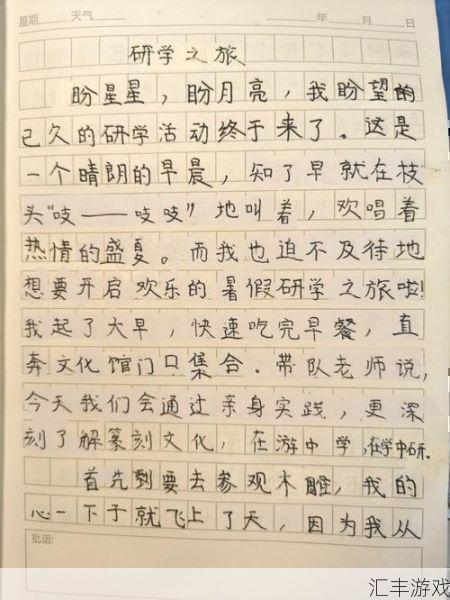 星期 天气 年 月 日
研学之旅
盼星星，盼月亮，我盼望的
已久的研学活动终于来了。这是
一个晴朗的早晨，知了早就在枝
头“吱——吱吱”地叫着，欢唱着
热情的盛夏。而我也迫不及待地
想要开启欢乐的暑假研学之旅啦！
我起了大早，快速吃完早餐，直
奔文化馆门口集合。带队老师说，
今天我们会通过亲身实践，更深
刻了解篆刻文化，在游中学，在学中研。
首先到要去参观木雕，我的
心一下子就飞上了天，因为我从
批语：
汇丰游戏